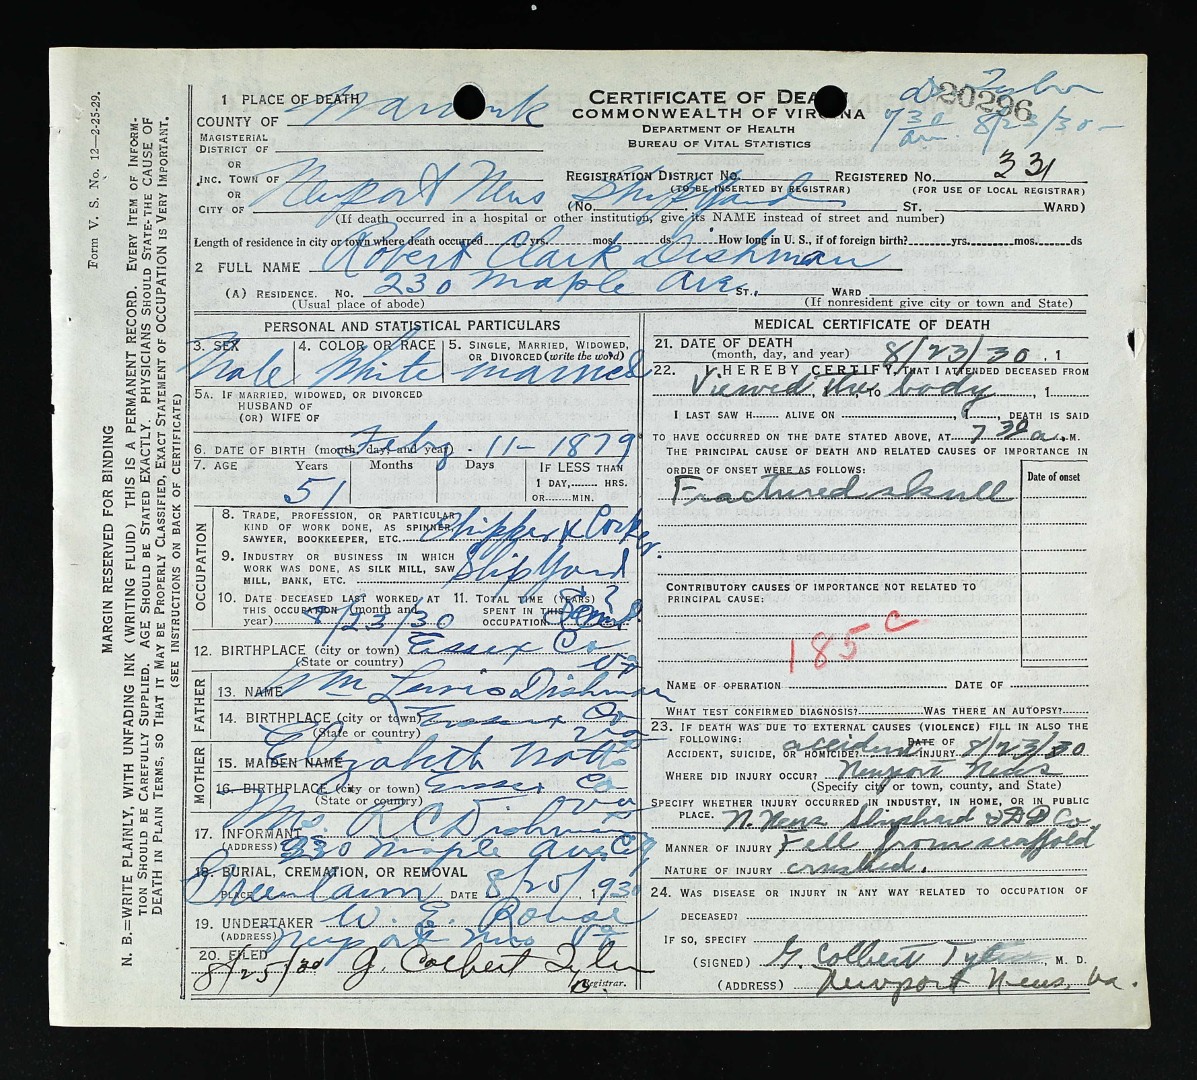 Form V. S. No. 12—2-25-29.
MARGIN RESERVED FOR BINDING
N. B.—WRITE PLAINLY, WITH UNFADING INK (WRITING FLUID) THIS IS A PERMANENT RECORD. EVERY ITEM OF INFORM-
TION SHOULD BE CAREFULLY SUPPLIED. AGE SHOULD BE STATED EXACTLY. PHYSICIANS SHOULD STATE THE CAUSE OF
DEATH IN PLAIN TERMS, SO THAT IT MAY BE PROPERLY CLASSIFIED, EXACT STATEMENT OF OCCUPATION IS VERY IMPORTANT.
(SEE INSTRUCTIONS ON BACK OF CERTIFICATE)
1 PLACE OF DEATH
COUNTY OF Warwick
MAGISTERIAL
DISTRICT OF
OR
INC. TOWN OF Newport News
OR
CITY OF
CERTIFICATE OF DEATH
COMMONWEALTH OF VIRGINIA
DEPARTMENT OF HEALTH
BUREAU OF VITAL STATISTICS
20296
7 30 am 8/23/30
REGISTRATION DISTRICT No. REGISTERED No. 331
(TO BE INSERTED BY REGISTRAR) (FOR USE OF LOCAL REGISTRAR)
(No. Ship Yard ST. WARD)
(If death occurred in a hospital or other institution, give its NAME instead of street and number)
Length of residence in city or town where death occurred yrs. mos. ds. How long in U. S., if of foreign birth? yrs. mos. ds
2 FULL NAME Robert Clark Dishman
(A) RESIDENCE. No. 230 Maple Ave. ST., WARD
(Usual place of abode) (If nonresident give city or town and State)
PERSONAL AND STATISTICAL PARTICULARS
3. SEX Male
4. COLOR OR RACE White
5. SINGLE, MARRIED, WIDOWED,
OR DIVORCED (write the word) married
5A. IF MARRIED, WIDOWED, OR DIVORCED
HUSBAND OF
(OR) WIFE OF
6. DATE OF BIRTH (month, day, and year) Feby - 11 - 1879
7. AGE Years Months Days IF LESS THAN
51 1 DAY, HRS.
OR MIN.
OCCUPATION
8. TRADE, PROFESSION, OR PARTICULAR
KIND OF WORK DONE, AS SPINNER,
SAWYER, BOOKKEEPER, ETC. Chipper & Corker.
9. INDUSTRY OR BUSINESS IN WHICH
WORK WAS DONE, AS SILK MILL, SAW
MILL, BANK, ETC. Ship Yard
10. DATE DECEASED LAST WORKED AT
THIS OCCUPATION (month and
year) 8/23/30
11. TOTAL TIME (YEARS)
SPENT IN THIS
OCCUPATION ?
12. BIRTHPLACE (city or town) Essex Co
(State or country) Va
FATHER
13. NAME Wm Lewis Dishman
14. BIRTHPLACE (city or town) Essex Co
(State or country) Va
MOTHER
15. MAIDEN NAME Elizabeth Notts
16. BIRTHPLACE (city or town) Essex Co
(State or country) Va
17. INFORMANT Mrs. R C Dishman
(ADDRESS) 230 Maple Ave City
18. BURIAL, CREMATION, OR REMOVAL
PLACE Greenlawn DATE 8/25/, 1930
19. UNDERTAKER W. E. Rouse
(ADDRESS) Newport News Va
20. FILED 8/25/30 G. Colbert Tyler
Registrar.
MEDICAL CERTIFICATE OF DEATH
21. DATE OF DEATH
(month, day, and year) 8/23/30, 1
22. I HEREBY CERTIFY, THAT I ATTENDED DECEASED FROM
Viewed the body, TO , 1
I LAST SAW H ALIVE ON , 1 , DEATH IS SAID
TO HAVE OCCURRED ON THE DATE STATED ABOVE, AT 7 30 a. M.
THE PRINCIPAL CAUSE OF DEATH AND RELATED CAUSES OF IMPORTANCE IN
ORDER OF ONSET WERE AS FOLLOWS: Date of onset
Fractured skull
CONTRIBUTORY CAUSES OF IMPORTANCE NOT RELATED TO
PRINCIPAL CAUSE:
185 c
NAME OF OPERATION DATE OF
WHAT TEST CONFIRMED DIAGNOSIS? WAS THERE AN AUTOPSY?
23. IF DEATH WAS DUE TO EXTERNAL CAUSES (VIOLENCE) FILL IN ALSO THE
FOLLOWING:
ACCIDENT, SUICIDE, OR HOMICIDE? accident DATE OF INJURY 8/23/30
WHERE DID INJURY OCCUR? Newport News
(Specify city or town, county, and State)
SPECIFY WHETHER INJURY OCCURRED IN INDUSTRY, IN HOME, OR IN PUBLIC
PLACE. N. News Shipbuild & D D Co
MANNER OF INJURY Fell from scaffold
NATURE OF INJURY crushed.
24. WAS DISEASE OR INJURY IN ANY WAY RELATED TO OCCUPATION OF
DECEASED?
IF SO, SPECIFY
(SIGNED) G. Colbert Tyler, M. D.
(ADDRESS) Newport News, Va.